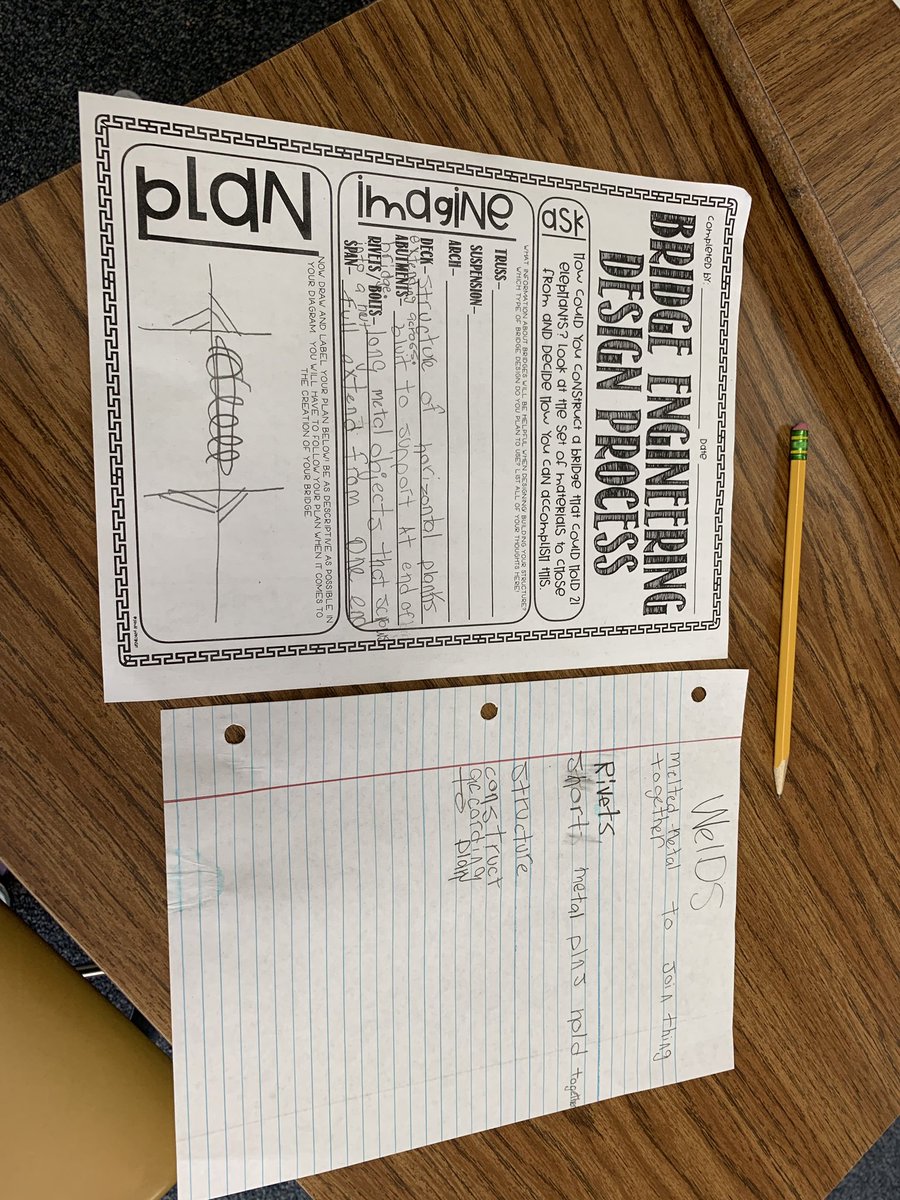 BRIDGE ENGINEERING
DESIGN PROCESS
COMPLETED BY:
DATE
ask
HOW COULD YOU CONSTRUCT A BRIDGE THAT COULD HOLD 21
ELEPHANTS? LOOK AT THE SET OF MATERIALS TO CLOSE
FROM AND DECIDE HOW YOU CAN ACCOMPLISH THIS.
imagiNe
WHAT INFORMATION ABOUT BRIDGES WILL BE HELPFUL WHEN DESIGNING/BUILDING YOUR STRUCTURE?
WHICH TYPE OF BRIDGE DESIGN DO YOU PLAN TO USE? LIST ALL OF YOUR THOUGHTS HERE!
TRUSS-
SUSPENSION-
ARCH-
DECK- structure of horizontal planks
extending across
ABUTMENTS- built to support at end of
bridge.
RIVETS/BOLTS- long metal objects that screw
into a nut
SPAN- full extend from one en
plaN
NOW DRAW AND LABEL YOUR PLAN BELOW! BE AS DESCRIPTIVE AS POSSIBLE IN
YOUR DIAGRAM. YOU WILL HAVE TO FOLLOW YOUR PLAN WHEN IT COMES TO
THE CREATION OF YOUR BRIDGE
WelDS
melted metal to join thing
together
Rivets
Short metal pins hold together
structure
construct
according
to plan